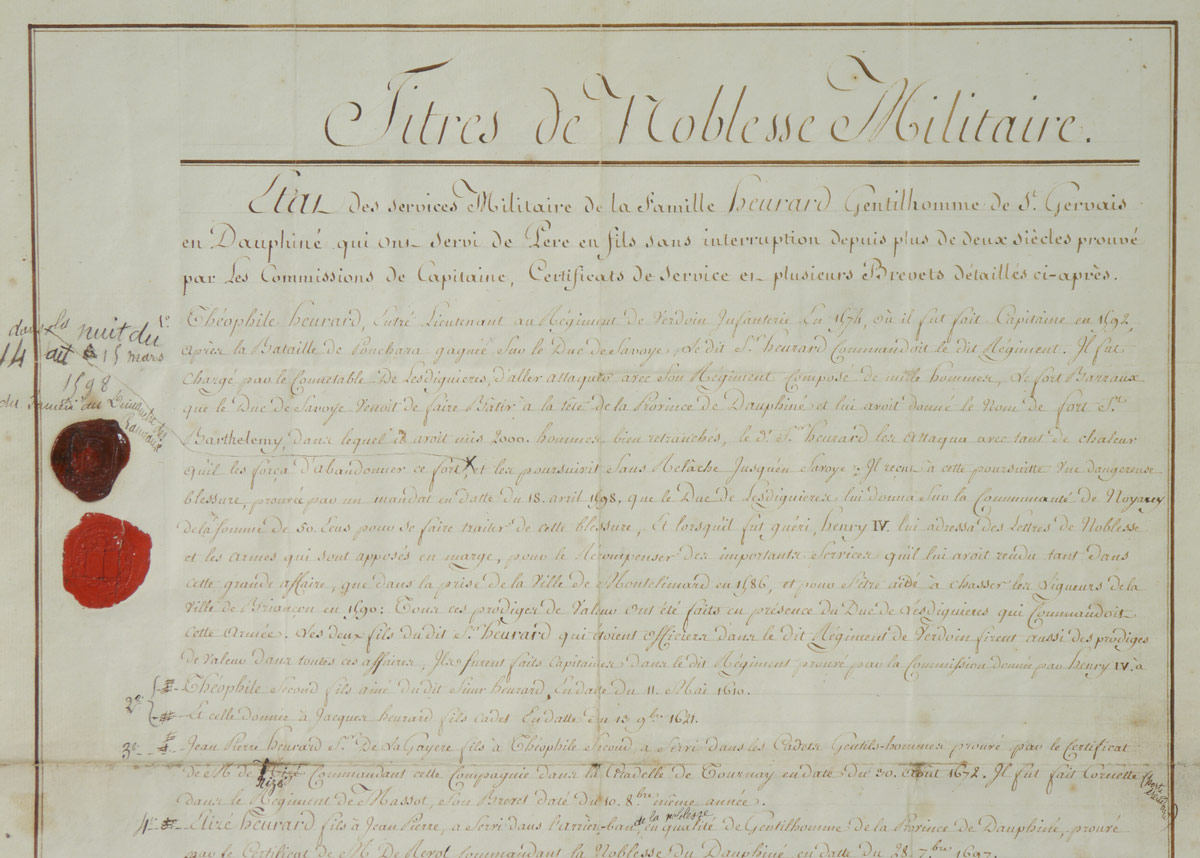 Titres de Noblesse Militaire.
Etat des services Militaire de la famille heurard Gentilhomme de St. Gervais
en Dauphiné qui ont servi de Pere en fils sans interruption depuis plus de deux siècles prouvé
par Les Commissions de Capitaine, Certificats de service et plusieurs Brevets détaillés ci-après.
1º. Théophile heurard, Entré Lieutenant au Régiment de Verdoin Infanterie En 1574, où il fut fait Capitaine en 1592.
Après la Bataille de Ponchara gagnée Sur le Duc de Savoye, Le dit Sr. heurard Commandoit le dit Régiment. Il fut
chargé par le Connetable De Lesdiguieres, d'aller attaquer avec Son Régiment Composé de mille hommes, Le fort Barraux
que le Duc de Savoye Venoit de faire Bâtir à la tête de la Province de Dauphiné et lui avoit donné le Nom de fort St.
Barthelemy, dans lequel il avoit mis 2000. hommes bien retranchés, le d. Sr. heurard les attaqua avec tant de chaleur
qu'il les força d'abandonner ce fort et les poursuivit Sans Relâche Jusqu'en Savoye: Il reçut à cette poursuitte Une dangereuse
blessure, prouvée par un mandat en datte du 18. avril 1598, que le Duc de Lesdiguieres lui donna Sur la Communauté de Noyarey
de la somme de 50. Ecus pour se faire traiter de cette blessure, Et lorsquil fut guéri, henry IV. lui adressa des Lettres de Noblesse
et les armes qui sont apposés en marge, pour le Récompenser des importants Services quil lui avoit rendu tant dans
cette grande affaire, que dans la prise de la Ville de Montelimard en 1586, et pour S'être aidé à chasser les Ligueurs de la
Ville de Briançon en 1590: Tous ces prodiges de Valeur ont été faits en présence du Duc de Lesdiguieres qui Commandoit
cette Armée. Les deux fils du dit Sr. heurard qui étoient officiers dans le dit Régiment de Verdoin firent aussi des prodiges
de Valeur dans toutes ces affaires, Ils furent faits Capitaines dans le dit Régiment prouvé par la Commission donnée par henry IV. à
2º. Théophile Second fils ainé du dit Sieur heurard, En datte du 11. Mai 1610.
Et celle donnée à Jacques heurard fils cadet En datte du 13 9bre 1621.
3º. Jean Pierre heurard Sr. De La Gayere fils à Théophile Second, a Servi dans les Cadets Gentils-hommes prouvé par le Certificat
de M. de Commandant cette Compagnie dans la Citadelle de Tournay en date du 30. Août 1672. Il fut fait Cornette
dans le Régiment de Massot, Son Brevet daté du 10. 8bre même année.
4º. Elizé heurard fils à Jean Pierre, a Servi dans l'arrière-ban de la noblesse en qualité de Gentilhomme de la Province de Dauphiné, prouvé
par le Certificat de M. De Revol Commandant la Noblesse du Dauphiné en datte du 28 7bre 1697.
dans la nuit du
14 au 15 mars
1598